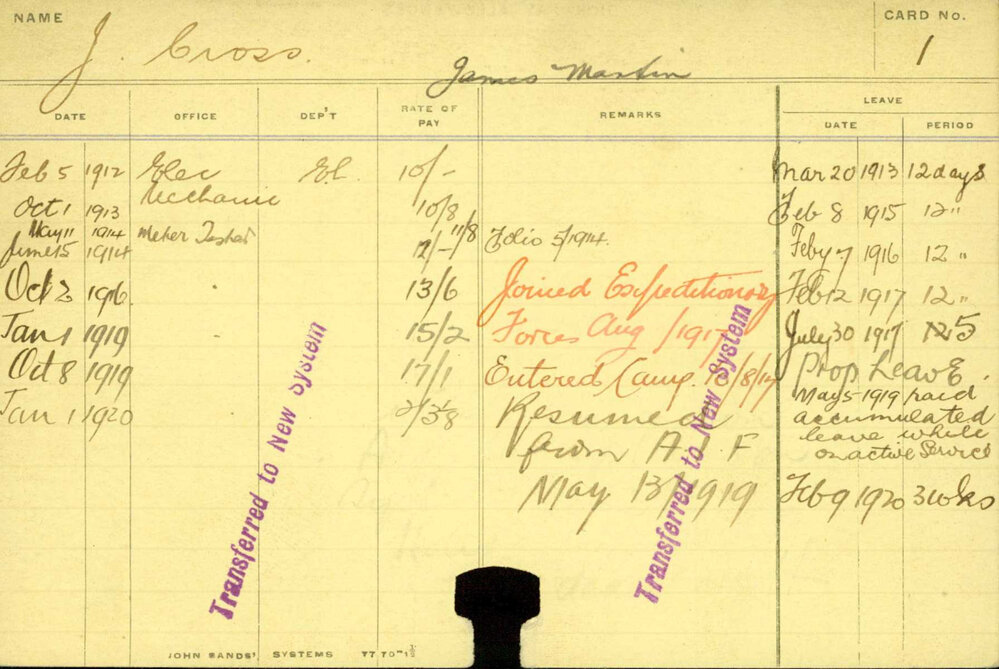 NAME
CARD No.
J. Cross.
1
James Martin
DATE OFFICE DEP'T RATE OF PAY REMARKS LEAVE
DATE PERIOD
Feb 5 1912 Elec El. 10/-
Mechanic
Oct 1 1913 10/8
May 11 1914 Meter Tester 11/8
June 15 1914 12/- Folio 5/1914.
Oct 2 1916 13/6 Joined Expeditionary
Jan 1 1919 15/2 Forces Aug /1917
Oct 8 1919 17/1 Entered Camp
Jan 1 1920 Resumed
from A I F
May 13/1919
Mar 20 1913 12 days
Feb 8 1915 12 "
Feby 7 1916 12 "
Feb 12 1917 12 "
July 30 1917 5
Prop Leave.
May 5 1919 paid
accumulated
leave while
on active Service
Feb 9 1920 3 wks
Transferred to New System
Transferred to New System
JOHN SANDS' SYSTEMS